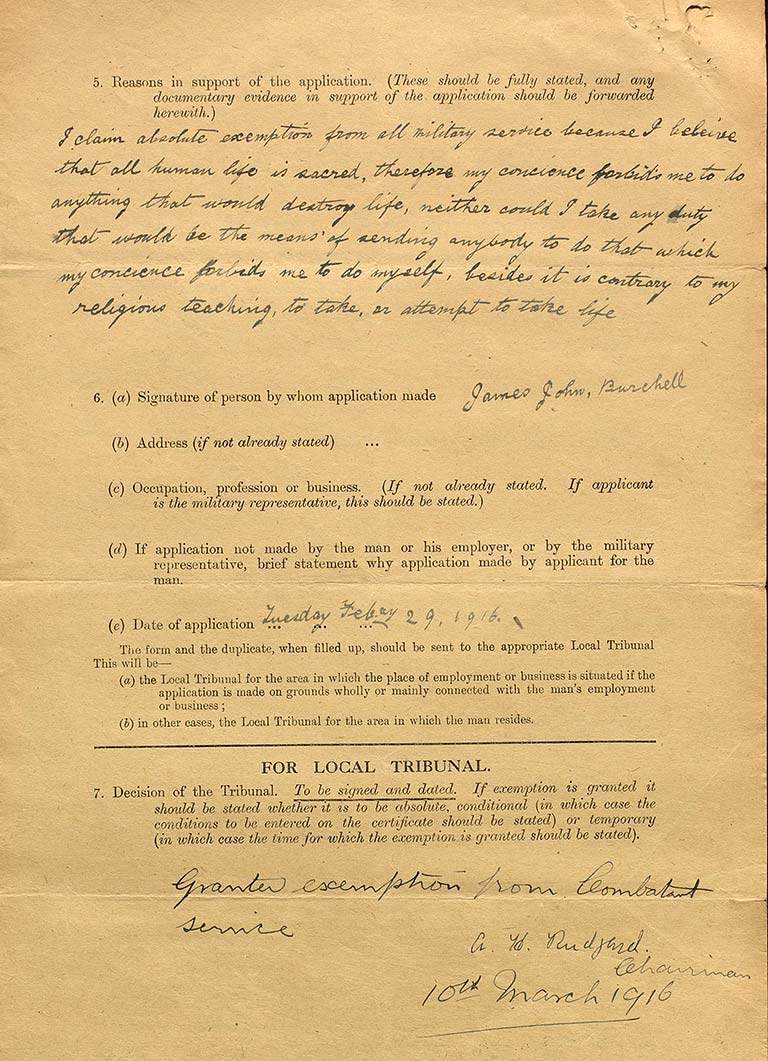 5. Reasons in support of the application. (These should be fully stated, and any
documentary evidence in support of the application should be forwarded
herewith.)
I claim absolute exemption from all military service because I beleive
that all human life is sacred, therefore my concience forbids me to do
anything that would destroy life, neither could I take any duty
that would be the means of sending anybody to do that which
my concience forbids me to do myself, besides it is contrary to my
religious teaching, to take, or attempt to take life
6. (a) Signature of person by whom application made James John, Burchell
(b) Address (if not already stated) ...
(c) Occupation, profession or business. (If not already stated. If applicant
is the military representative, this should be stated.)
(d) If application not made by the man or his employer, or by the military
representative, brief statement why application made by applicant for the
man.
(e) Date of application Tuesday Febay 29, 1916.
The form and the duplicate, when filled up, should be sent to the appropriate Local Tribunal
This will be—
(a) the Local Tribunal for the area in which the place of employment or business is situated if the
application is made on grounds wholly or mainly connected with the man's employment
or business;
(b) in other cases, the Local Tribunal for the area in which the man resides.
FOR LOCAL TRIBUNAL.
7. Decision of the Tribunal. To be signed and dated. If exemption is granted it
should be stated whether it is to be absolute, conditional (in which case the
conditions to be entered on the certificate should be stated) or temporary
(in which case the time for which the exemption is granted should be stated).
Granted exemption from Combatant
service
A. H.
Chairman
10th March 1916